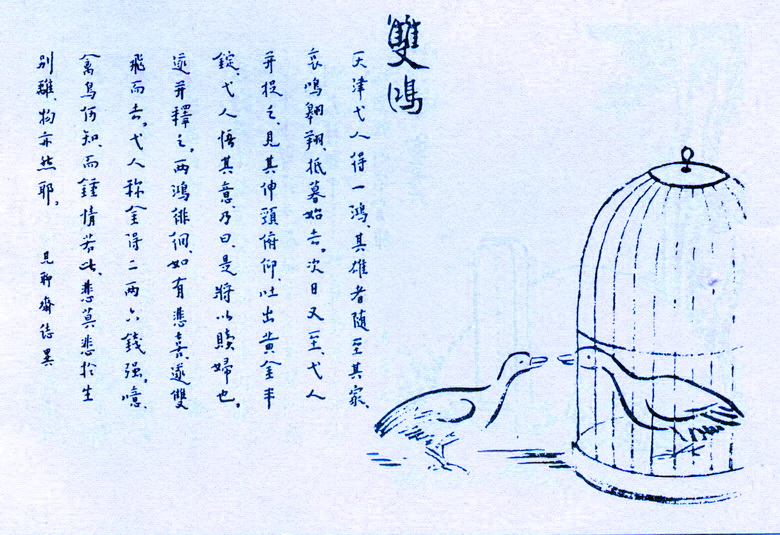 雙鴻
天津弋人得一鴻、其雄者隨至其家、
哀鳴翱翔、抵暮始去。次日又至、弋人
并捉之、見其伸頸俯仰、吐出黄金半
錠、弋人悟其意、乃曰、是將以贖婦也。
遂并釋之。兩鴻徘徊、如有悲喜、遂雙
飛而去。弋人称金得二兩六錢强。噫、
禽鳥何知、而鍾情若此、悲莫悲於生
别離、物亦然耶。
見聊齋誌異